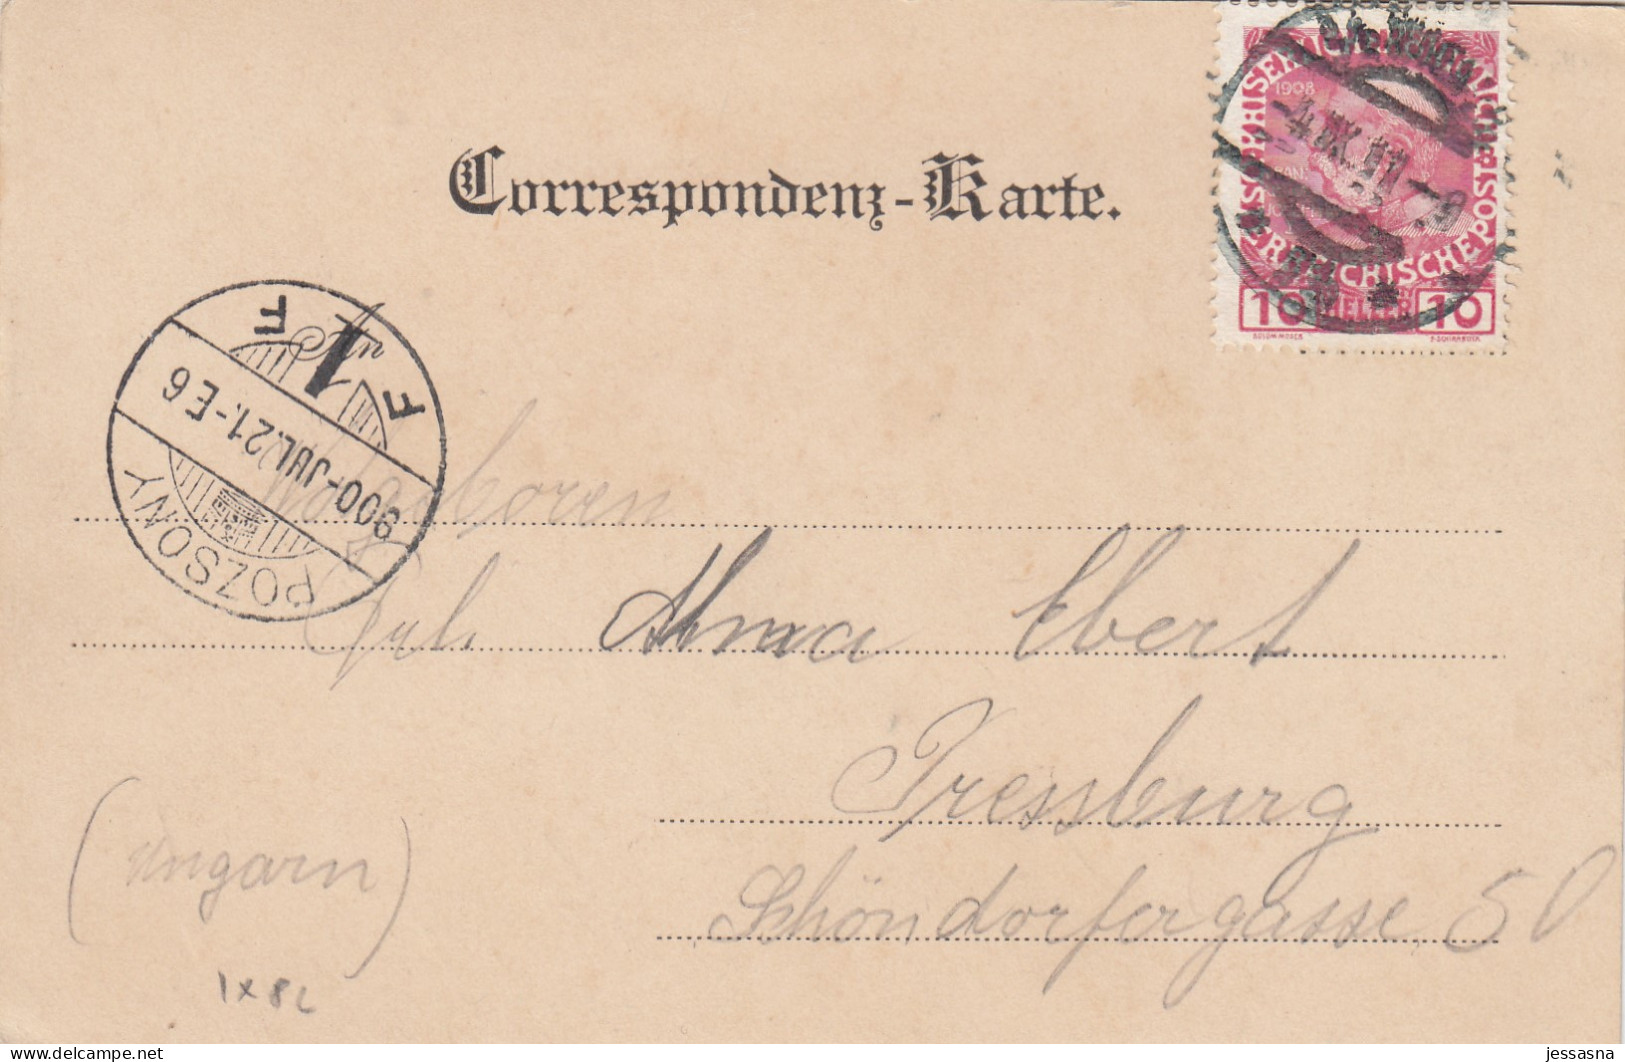 Correspondenz-Karte.
KAISERLICHE KÖNIGLICHE ÖSTERREICHISCHE POST
1908
10 HELLER 10
4 IX 11 - 9
POZSONY
900-JUL.21.-E6
F 1 F
Wolgeboren
Frl. Alma Ebert
Pressburg
Schöndorfergasse 50
(Ungarn)
jessasna